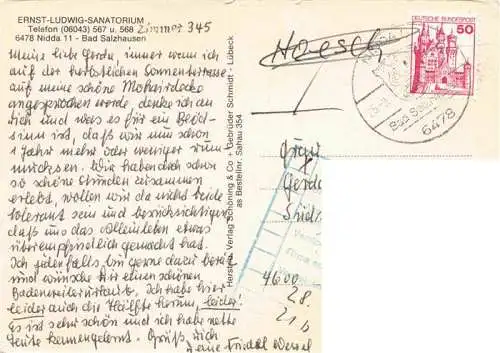 ERNST-LUDWIG-SANATORIUM
Telefon (06043) 567 u. 568 Zimmer 345
6478 Nidda 11 - Bad Salzhausen
Meine liebe Gerda, immer wenn ich
auf der herbstlichen Sonnenterrasse
auf meine schöne Mohairdecke
angesprochen werde, denke ich an
dich und was es für ein Blöd-
sinn ist, daß wir uns schon
1 Jahr mehr oder weniger rum-
mucksen. Wir haben doch schon
so schöne Stunden zusammen
erlebt, wollen wir da nicht beide
tolerant sein und berücksichtigen
daß uns das Alleinleben etwas
überempfindlich gemacht hat.
Ich jedenfalls bin gerne dazu bereit
und wünsche dir einen schönen
Badenweilerurlaub. Ich habe hier
leider auch die Hälfte herum, leider!
Es ist sehr schön und ich habe nette
Leute kennengelernt. Grüß dich
Deine Friedel Wessel
Herstellung: Verlag Schöning & Co + Gebrüder Schmidt - Lübeck
as Bestellnr. Sahau 454
Hoesch
DEUTSCHE BUNDESPOST
50
Bad Salzhausen
6478
Gerda
Süd
4600
28
21 b